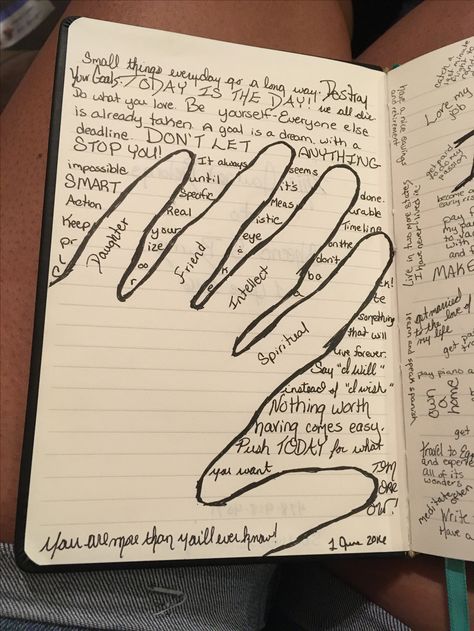 Small things everyday go a long way. Destroy
Your Goals. TODAY IS THE DAY!! We all die.
Do what you love. Be yourself - Everyone else
is already taken. A goal is a dream with a
deadline. DON'T LET ANYTHING
STOP YOU! It always seems
impossible until it's done.
SMART Specific Measurable
Action Realistic Timeline
Keep your eye on the
prize don't
look back!
Create
something
that will
live forever.
Say "I will"
instead of "I wish"
Nothing worth
having comes easy.
Push TODAY for what
you want
TOM
ORR
OW!
Daughter
Friend
Intellect
Spiritual
You are more than you'll ever know!
1 June
Have a nice savings
and retirement
Love my
job
live in two more states
I have never lived in.
become
early
pay
my pa
MAKE
learn spanish
get married
to the love of
my life
get
play piano
own
a
home
get
travel to
and experience
all of its
wonders
meditate
Write
Have a